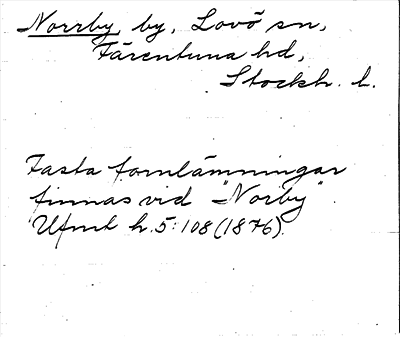 Norrby by, Lovö sn,
Färentuna hd,
Stockh. l.
Fasta fornlämningar
finnas vid "Norby"
Ufmt h. 5:108 (1876).